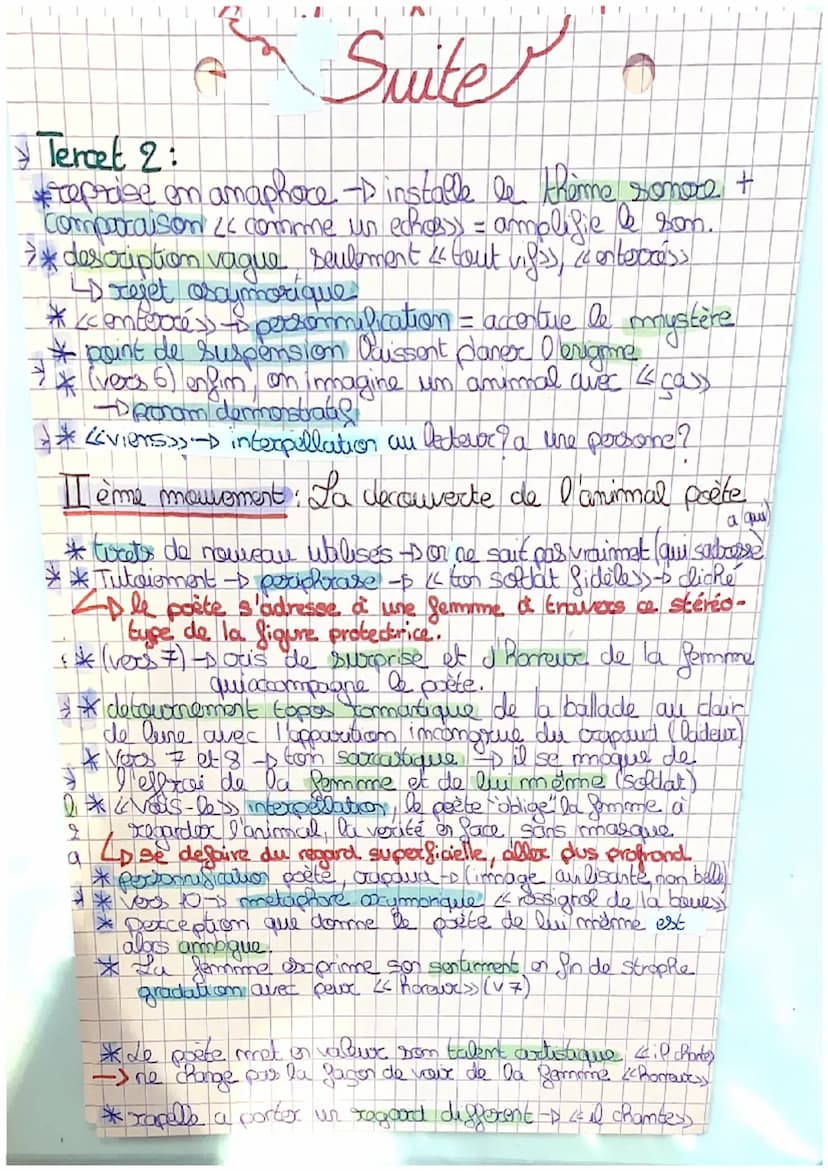 Suite
Tercet 2 :
* reprise en anaphore → installe le thème sonore +
comparaison << comme un echo >> = amplifie le son.
* description vague, seulement << tout vif >>, << enterré >>
↳ rejet
* << enterré >> → personnification = accentue le mystère
* point de suspension laissent planer l'enigme
* (vers 6) enfin, on immagine un animal avec << ça >>
→ pronom demonstratif
* << viens >> → interpellation au lecteur ? a une persone ?
II ème mouvement : La decouverte de l'animal poète
a qui)
* tirets de nouveau utilisés → on ne sait pas vraimet (qui sadresse
* Tutoiement → periphrase → << ton soldat fidèle >> → cliché
↳ le poète s'adresse à une femme à travers ce stéréo-
type de la figure protectrice.
* (vers 7) → cris de surprise et d'horreur de la femme
qui accompagne le poète.
* detournement topos romantique de la ballade au clair
de lune avec l'apparition incongrue du crapaud (laideur)
* Vers 7 et 8 → ton sarcastique → il se moque de
l'effroi de la femme et de lui même (soldat)
* << Vois-le >> interpellation, le poète "oblige" la femme à
regarder l'animal, la verité en face, sans masque
↳ se defaire du regard superficielle, aller plus profond
* personnification poète, crapaud → (image avilisante, non belle)
* Vers 10 → metaphore oxymorique << rossignol de la boue >>
* perception que donne le poète de lui même est
alors ambigue.
* La femme exprime son sentiment en fin de strophe
gradation avec peur << horreur >> (v 7)
* Le poète met en valeur son talent artistique, << il chante >>
→ ne change pas la façon de voir de la femme << horreur >>
* rapelle a porter un regard different → << il chante >>